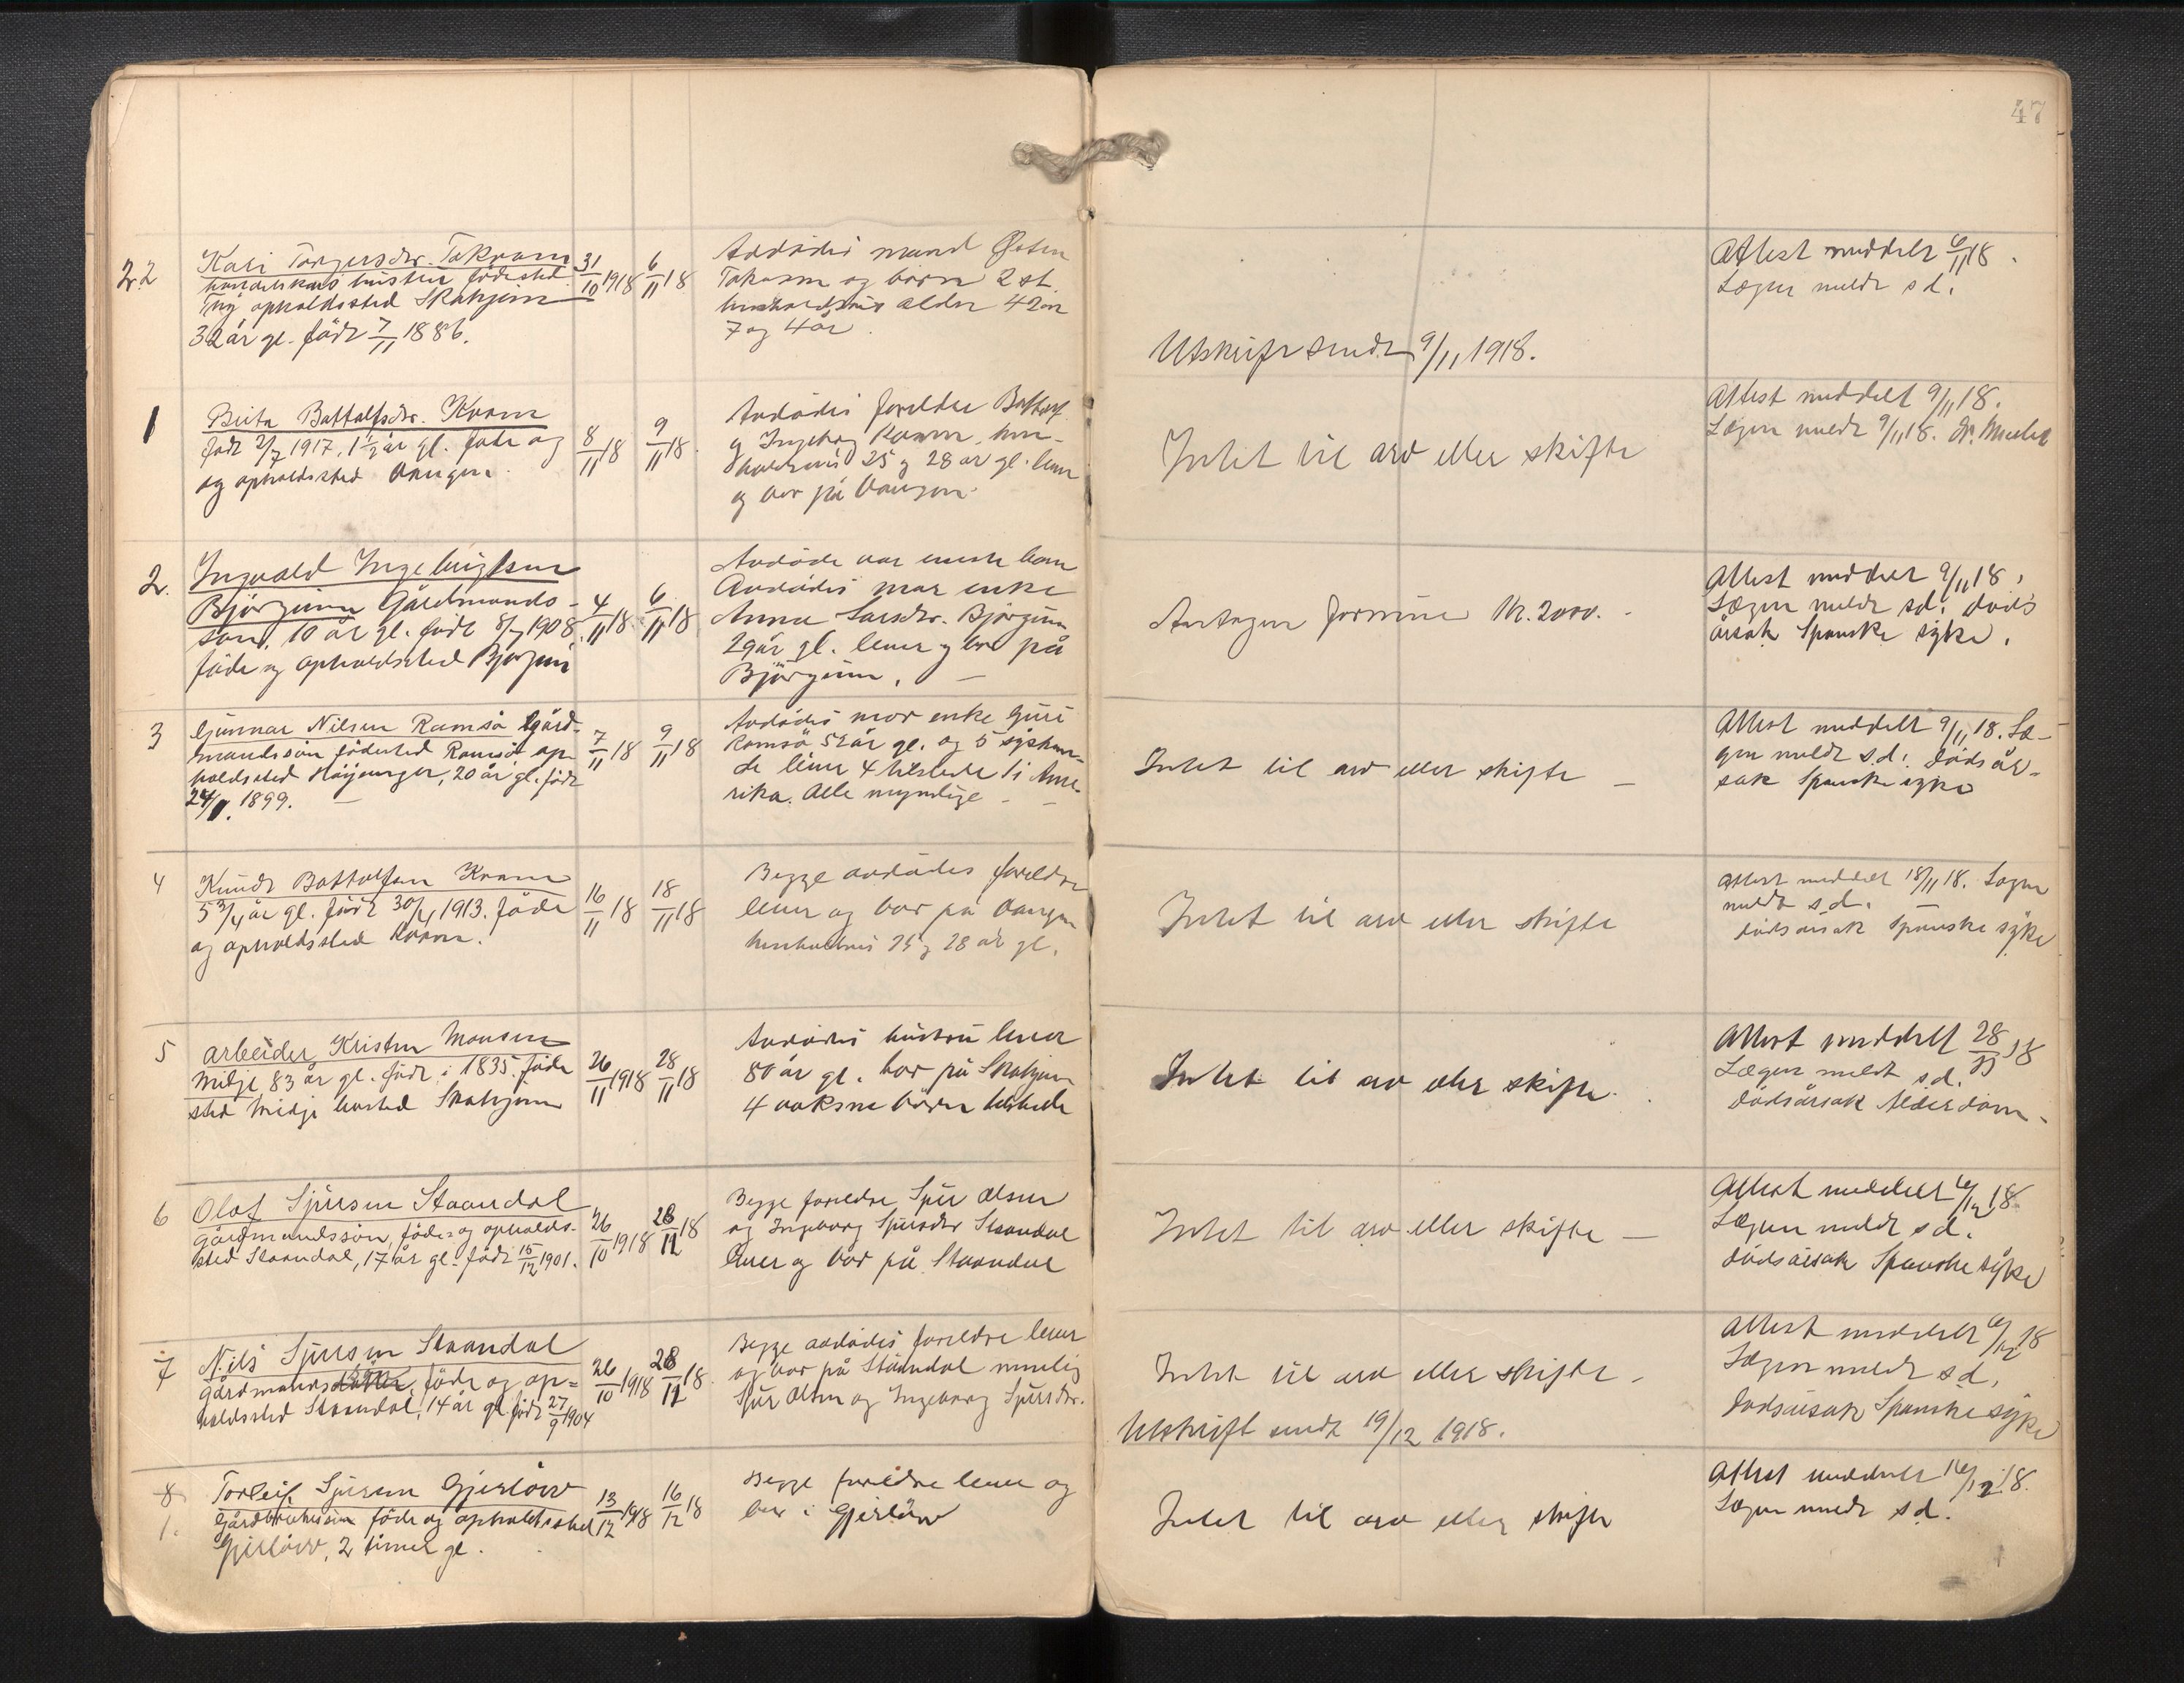 47
22
Kari Torgersdr. Takvam
handelskars hustru födested
opholdssted Skahjem
32 år gl. födt 7/11 1886.
31/10 1918
6/11 18
Avdödes mand Östen
Takvam og barn 2 st.
henholdsvis alder 42 og
7 og 4 år.
Utskrift sendt 9/11 1918.
Attest meddelt 6/11 18.
Lægen meldt s d.
1
Brita Bottolfsdr. Kvam
födt 2/7 1917, 1 1/2 år gl. föde og
og opholdssted Vangen.
8/11 18
9/11 18.
Avdödes foreldre Bottolf
og Ingeborg Kvam, hen-
holdsvis 25 og 28 år gl. lever
og bor på Vangen.
Intet til arv eller skifte
Attest meddelt 9/11 18.
Lægen meldt 9/11 18. Dr.
2.
Ingvald Ingebrigtsen
Björgum Gårdmands-
sön, 10 år gl. födt 8/7 1908
föde og opholdssted Björgum
4/11 18.
6/11 18
Avdöde var eneste barn
Avdödes mor enke
Anna Larsdr. Björgum
29 år gl. lever og bor på
Björgum. —
Antagen formue Kr. 2000. -
Attest meddelt 9/11 18,
Lægen meldt sd. döds
årsak Spanske syke.
3
Gunnar Nilsen Ramsö gård-
mandssön födested Ramsö op-
holdssted 20 år gl. födt
24/11. 1899. —
7/11 18
9/11 18
Avdödes mor enke Guri
Ramsö 52 år gl. og 5 sysken-
de lever 4 tilstede 1 i Ame-
rika. Alle myndige - -
Intet til arv eller skifte —
Attest meddelt 9/11 18. Læ-
gen meldt s.d. Dödsår-
sak Spanske syke
4
Knudt Bottolfsen Kvam
5 3/4 år gl. födt 30/4 1913. föde
og opholdssted Kvam.
16/11 18
18/11 18
Begge avdödes foreldre
lever og bor på Vangen
henholdsvis 25 og 28 år gl.
Intet til arv eller skifte
Attest meddelt 18/11 18. Lægen
meldt s d.
dödsårsak Spanske syke
5
arbeider Kristen Monsen
Midje 83 år gl. födt i 1835. föde
sted Midje bosted Skahjem
26/11 1918
28/11 18
Avdödes hustru lever
80 år gl. bor på Skahjem
4 voksne börn tilstede
Intet til arv eller skifte.
Attest meddelt 28/11 18
Lægen meldt s.d.
Dödsårsak Alderdom -
6
Olaf Sjursen Skaandal
gårdmandssön, föde og opholds-
sted Skaandal, 17 år gl. födt 15/12 1901.
26/10 1918
28/12 18
Begge foreldre Sjur Olsen
og Ingeborg Sjursdr Skaandal
lever og bor på Skaandal
Intet til arv eller skifte —
Attest meddelt 6/12 18.
Lægen meldt s d.
Dödsårsak Spanske syke
7
Nils Sjursen Skaandal
gårdmands föde og op-
holdssted Skaandal, 14 år gl. födt 27/9 1904
26/10 1918
28/12 18.
Begge avdödes foreldre lever
og bor på Skaandal nemlig
Sjur Olsen og Ingeborg Sjursdr.
Intet til arv eller skifte -
Utskrift sendt 19/12 1918.
Attest meddelt 6/12 18
Lægen meldt s d.
Dödsårsak Spanske syke
8
1.
Torleif Sjursen Gjerlöw
föde og opholdssted
Gjerlöw, 2 timer gl.
13/12 1918
16/12 18
Begge foreldre lever og
bor i Gjerlöw
Intet til arv eller skifte
Attest meddelt 16/12 18.
Lægen meldt s d.